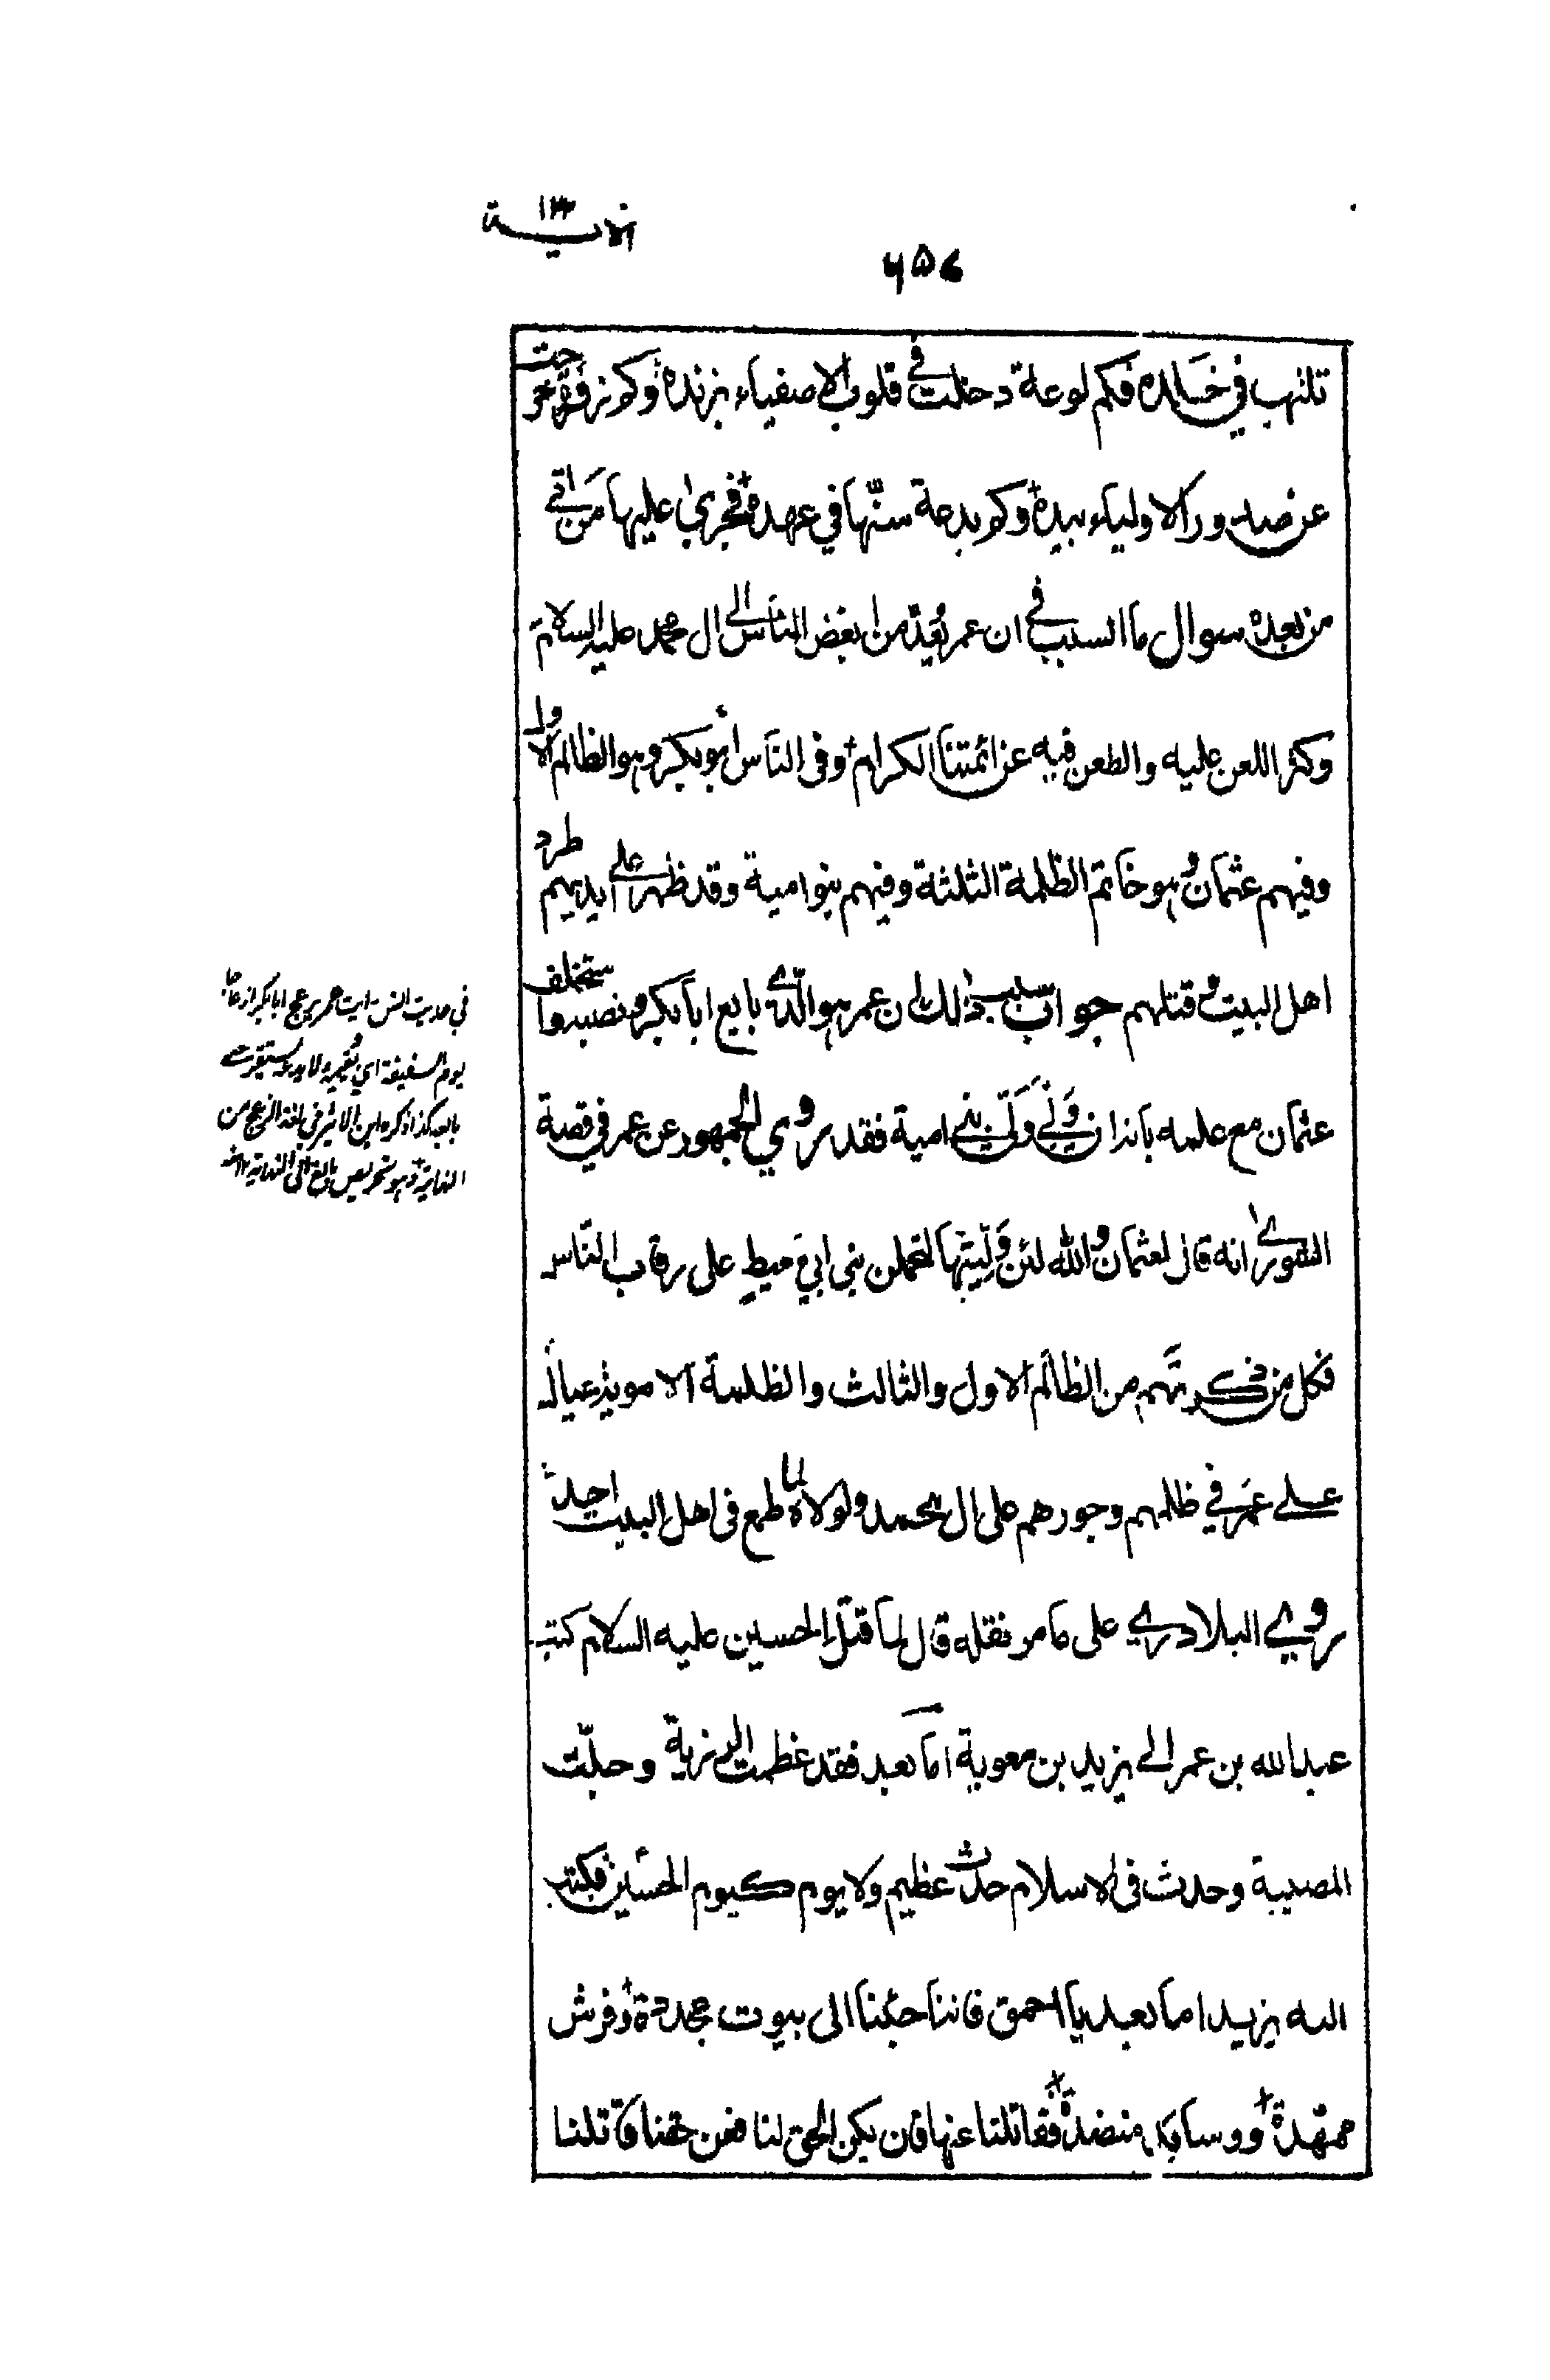 الآية ١٣
٦٥٧
تلتهب في خلده فكم لوعة دخلت في قلوب الاصفياء بزنده وكم زفرة خرجت
عن صدور الاولياء بيده وكم بدعة سنّها في عهده فجرى عليها من اتى
من بعده سوال ما السبب في ان عمر يُعَدّ من ابغض الناس الى ال محمد عليه السلام
وكثر اللعن عليه والطعن فيه عن ائمتنا الكرام وفى الناس أبو بكر وهو الظالم الاول
وفيهم عثمان وهو خاتم الظلمة الثلثة وفيهم بنو امية وقد ظهر على ايديهم طرد
اهل البيت و قتلهم جواب سبب ذلك ان عمر هو الّذي بايع ابا بكر و نصبه واستخلف
عثمان مع علمه بانه ان وَلِيَ وَلّى بني امية فقد روي الجمهور عن عمر في قصة
الشورى انه قال لعثمان والله لئن وَلِيتَها لتحملن بني ابي معيط على رقاب النّاس
فكل من ذكرتهم من الظالم الاول والثالث والظلمة الاموية عيال
على عمر في ظلمهم وجورهم على ال محمد ولولاه لما طمع فى اهل البيت احد
روي البلاذري على ما مر نقله قال لما قتل الحسين عليه السلام كتب
عبد الله بن عمر الى يزيد بن معوية اما بعد فقد عظمت الرزية وجلّت
المصيبة وحدث فى الاسلام حدث عظيم ولا يوم كيوم الحسين فكتب
اليه يزيد اما بعد يا احمق فاننا جئنا الى بيوت مجددة و فرش
ممهّدة و وسايد منضدة فقاتلنا عنها فان يكن الحق لنا فعن حقنا قاتلنا
في حديث انس رايت عمر يزعج ابا بكر ازعاجا
يوم السقيفة اي يُقيمه ولا يدعه يستقر حتى
بايعه كذا ذكره ابن الاثير في لغة الزعج من
النهاية